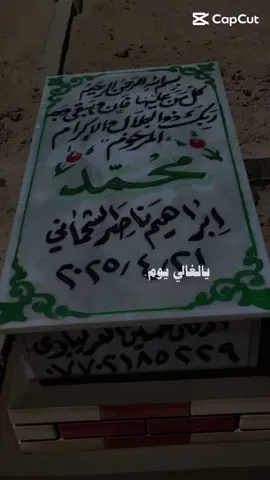 CapCut
بسم الله الرحمن الرحيم
كل من عليها فان ويبقى وجه
ربك ذو الجلال والإكرام
المرحوم
محمد
ابراهيم ناصر الشحماني
٢٠٢٥/٤/٢١
يالغالي يوم.
حسين الغريباوي
٠٧٧٠٢١٨٥٢٢٩